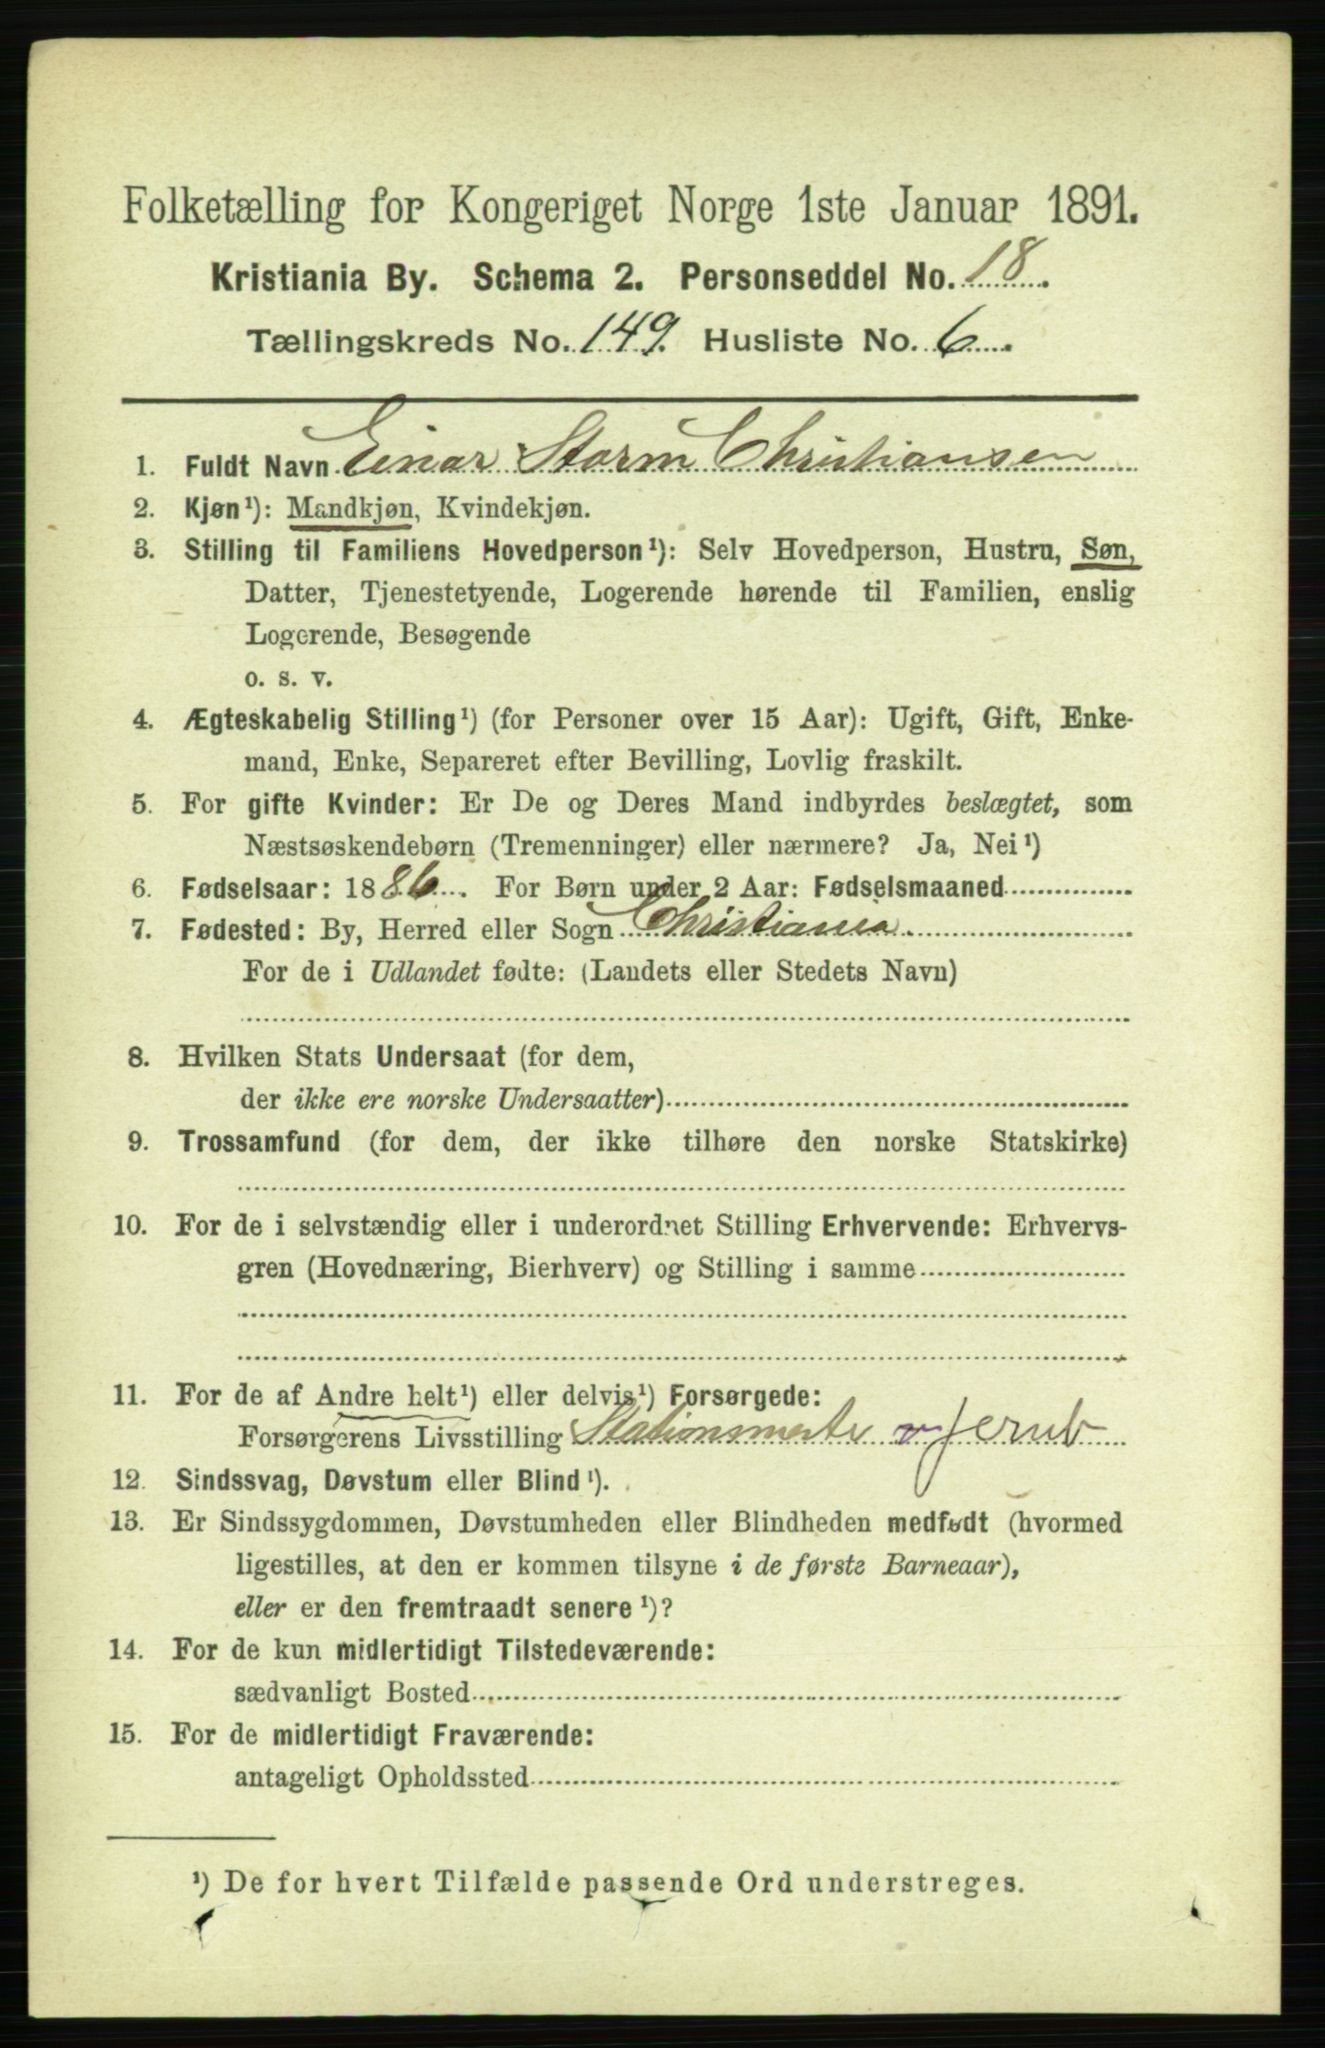 Folketælling for Kongeriget Norge 1ste Januar 1891.
Kristiania By. Schema 2. Personseddel No. 18.
Tællingskreds No. 149. Husliste No. 6.
1. Fuldt Navn Einar Storm Christiansen
2. Kjøn¹): Mandkjøn, Kvindekjøn.
3. Stilling til Familiens Hovedperson¹): Selv Hovedperson, Hustru, Søn,
Datter, Tjenestetyende, Logerende hørende til Familien, enslig
Logerende, Besøgende
o. s. v.
4. Ægteskabelig Stilling¹) (for Personer over 15 Aar): Ugift, Gift, Enke-
mand, Enke, Separeret efter Bevilling, Lovlig fraskilt.
5. For gifte Kvinder: Er De og Deres Mand indbyrdes beslægtet, som
Næstsøskendebørn (Tremenninger) eller nærmere? Ja, Nei¹)
6. Fødselsaar: 1886. For Børn under 2 Aar: Fødselsmaaned
7. Fødested: By, Herred eller Sogn Christiania.
For de i Udlandet fødte: (Landets eller Stedets Navn)
8. Hvilken Stats Undersaat (for dem,
der ikke ere norske Undersaatter)
9. Trossamfund (for dem, der ikke tilhøre den norske Statskirke)
10. For de i selvstændig eller i underordnet Stilling Erhvervende: Erhvervs-
gren (Hovednæring, Bierhverv) og Stilling i samme
11. For de af Andre helt¹) eller delvis¹) Forsørgede:
Forsørgerens Livsstilling Stationsmester v Jernb
12. Sindssvag, Døvstum eller Blind¹).
13. Er Sindssygdommen, Døvstumheden eller Blindheden medfødt (hvormed
ligestilles, at den er kommen tilsyne i de første Barneaar),
eller er den fremtraadt senere¹)?
14. For de kun midlertidigt Tilstedeværende:
sædvanligt Bosted
15. For de midlertidigt Fraværende:
antageligt Opholdssted
¹) De for hvert Tilfælde passende Ord understreges.